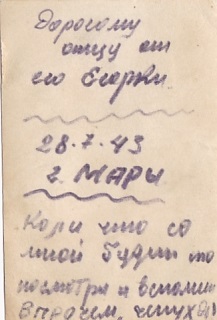 Дорогому
отцу от
его Егорки
28.7.43
г. МАРЫ
Коли что со
мной будит то
посмотри и вспомни
Впрочем, чепуха